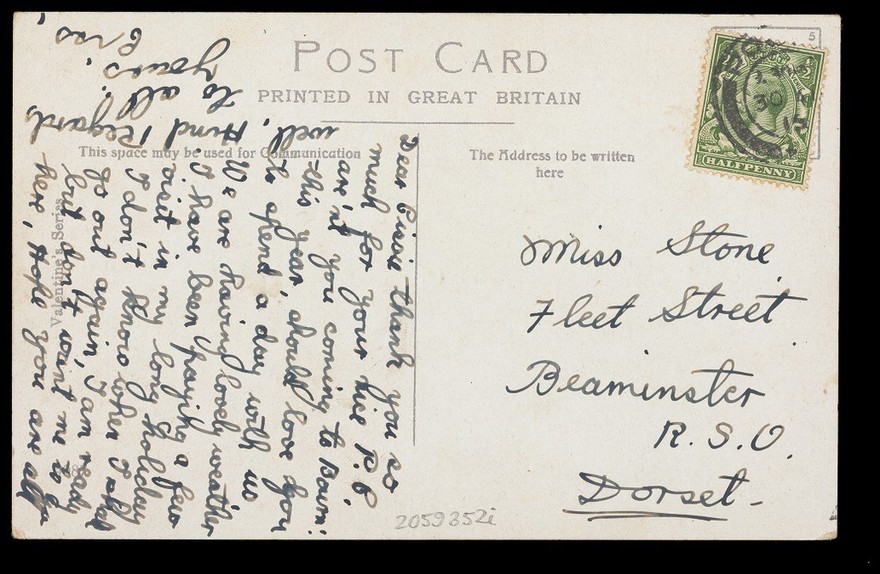 POST CARD
PRINTED IN GREAT BRITAIN
This space may be used for Communication
The Address to be written
here
5
HALFPENNY
30
Valentine's Series
Dear Cissie thank you so
much for your nice P.C.
are'nt you coming to Bourn:
this year, should love you
to spend a day with us
We are having lovely weather
I have been paying a few
visit in my long holiday
I don't know when I shall
go out again, I am ready
but don't want me to be
here, Hope you are all
well, Kind Regards
to all.
yours
Miss Stone
Fleet Street
Beaminster
R.S.O.
Dorset-
2059352i